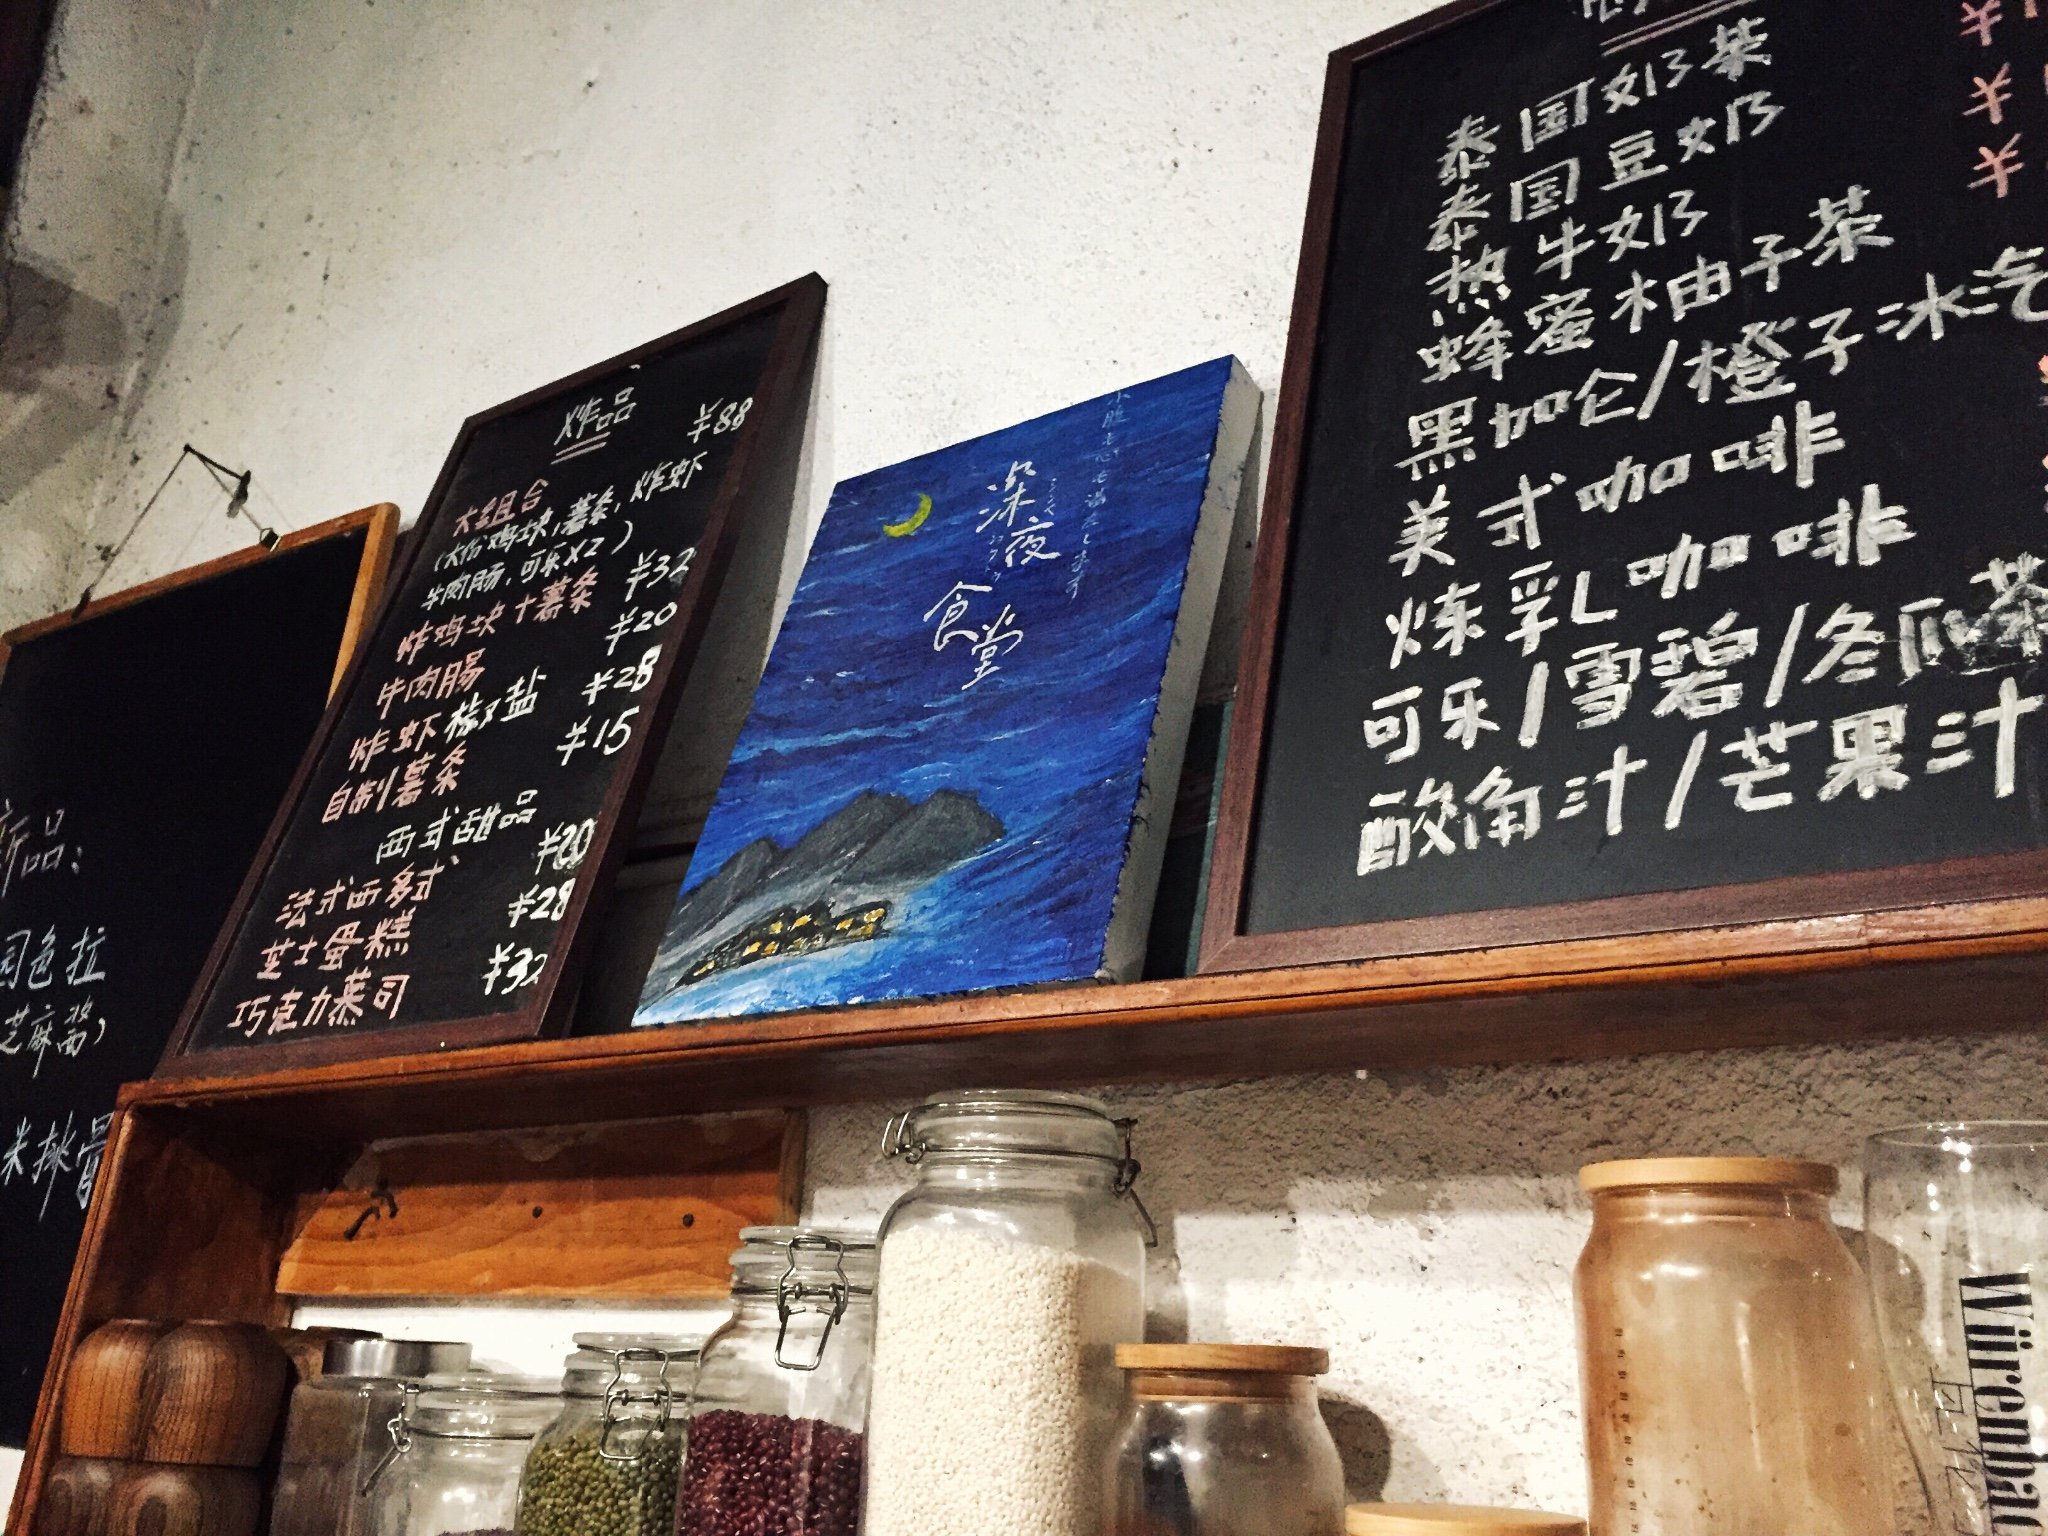 新品:
色拉
芝麻酱)
排骨
炸品
大组合 ¥88
(大份鸡块,薯条,炸虾
牛肉肠,可乐X2)
炸鸡块+薯条 ¥32
牛肉肠 ¥20
炸虾椒盐 ¥28
自制薯条 ¥15
西式甜品
法式西多式 ¥20
芝士蛋糕 ¥28
巧克力慕司 ¥32
深夜
食堂
泰国奶茶 ¥
泰国豆奶 ¥
热牛奶 ¥
蜂蜜柚子茶
黑加仑/橙子冰汽
美式咖啡
炼乳咖啡
可乐/雪碧/冬瓜茶
酸角汁/芒果汁